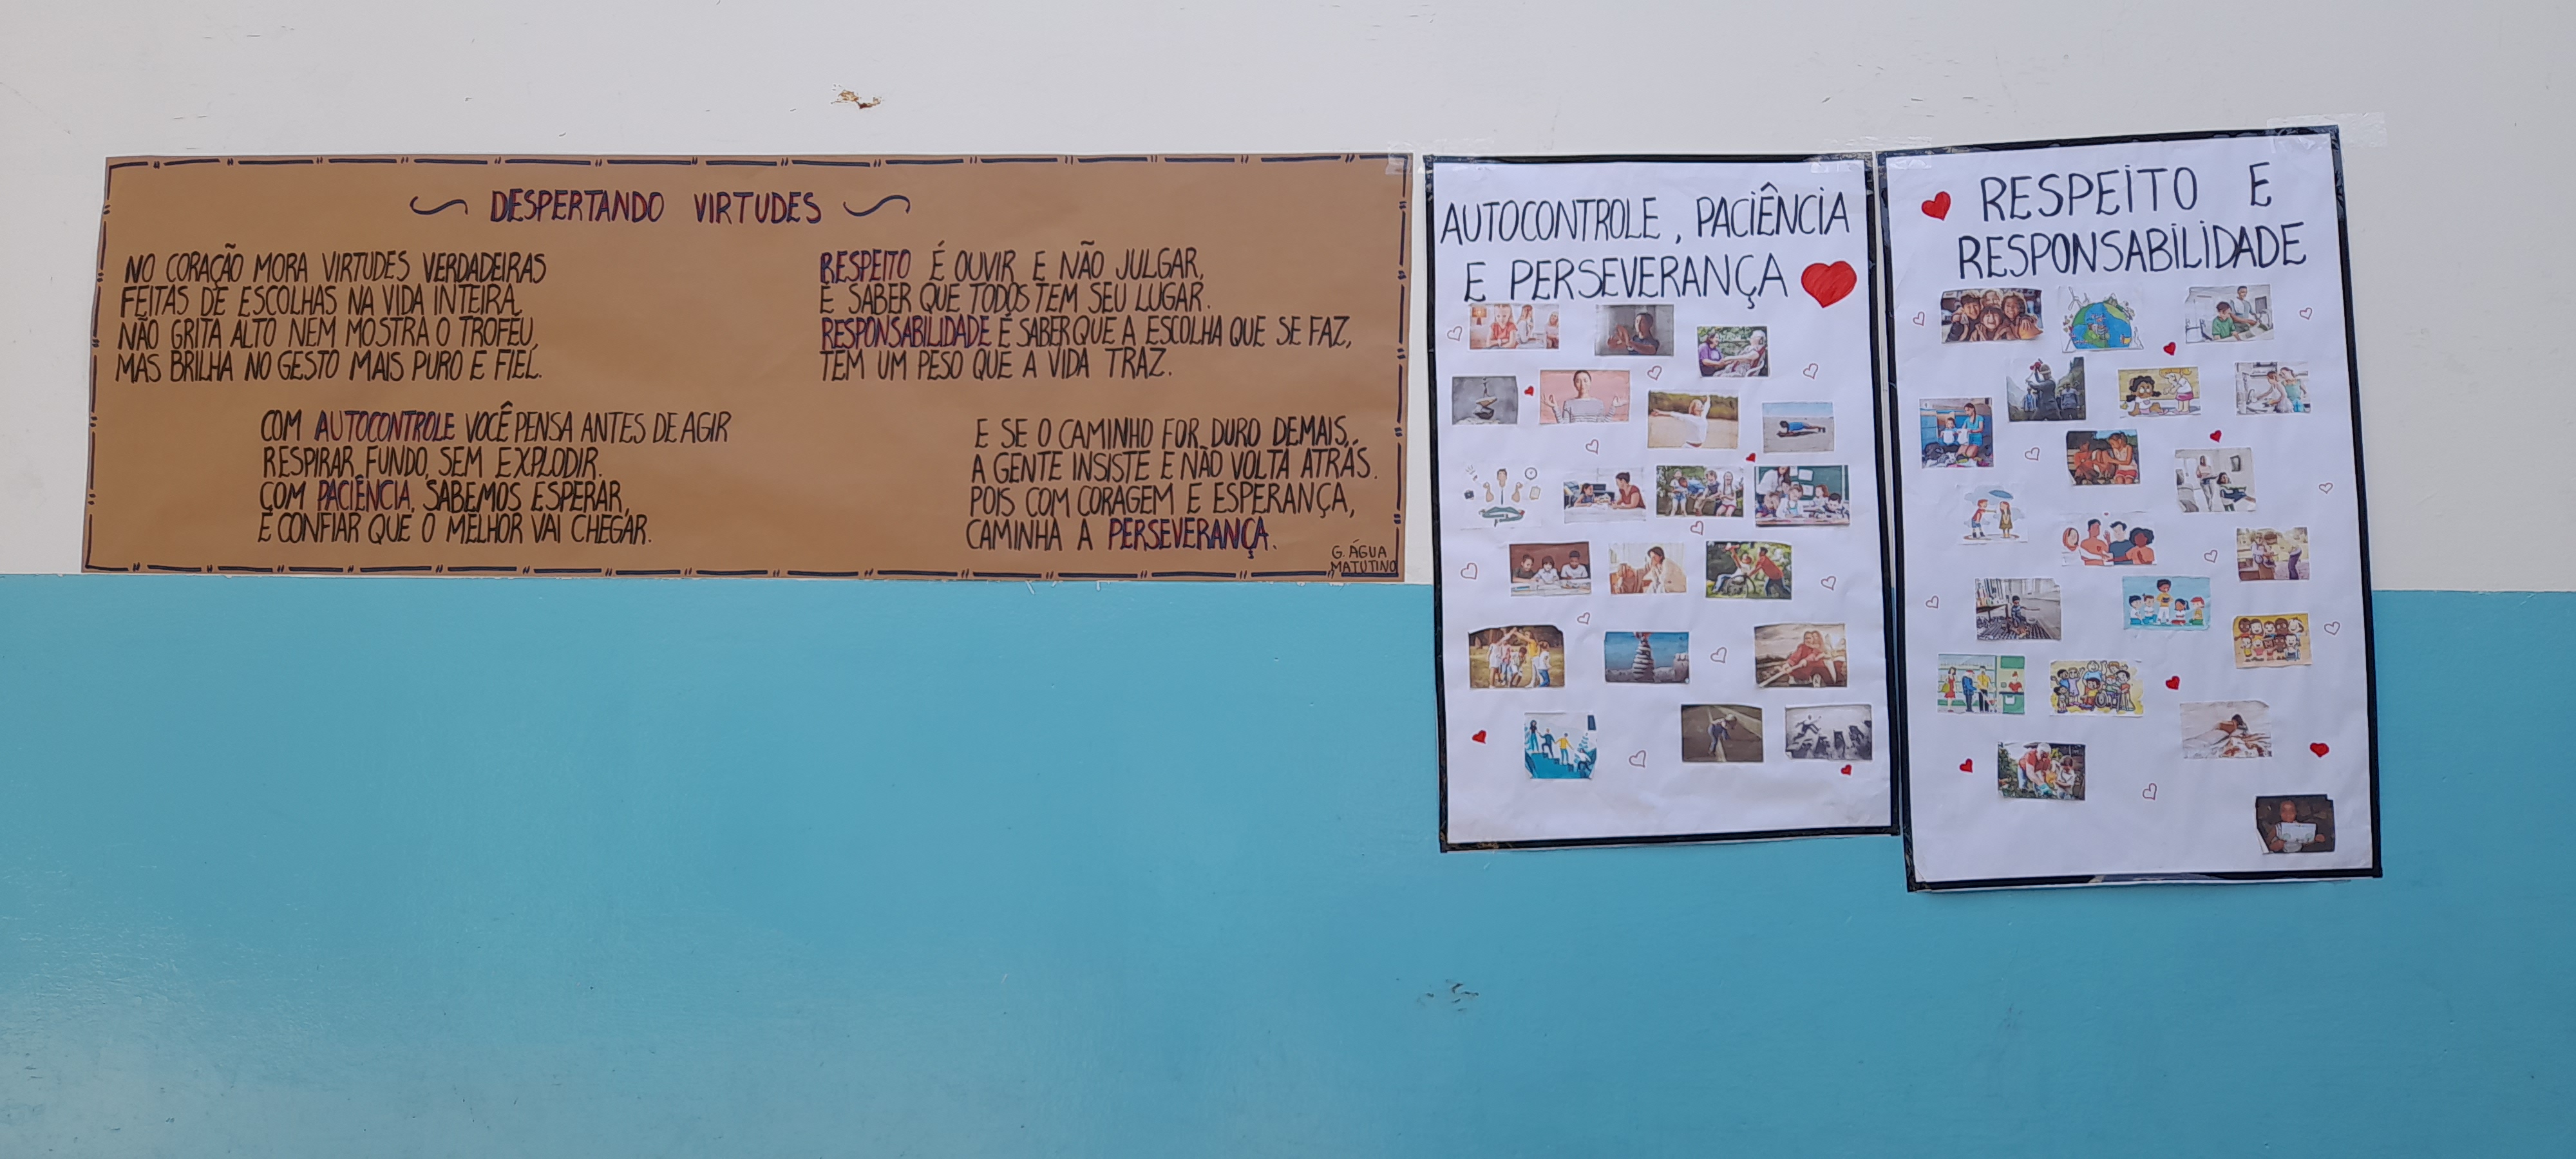 DESPERTANDO VIRTUDES
NO CORAÇÃO MORA VIRTUDES VERDADEIRAS
FEITAS DE ESCOLHAS NA VIDA INTEIRA,
NÃO GRITA ALTO NEM MOSTRA O TROFÉU,
MAS BRILHA NO GESTO MAIS PURO E FIEL.
COM AUTOCONTROLE VOCÊ PENSA ANTES DE AGIR
RESPIRAR FUNDO, SEM EXPLODIR.
COM PACIÊNCIA, SABEMOS ESPERAR,
E CONFIAR QUE O MELHOR VAI CHEGAR.
RESPEITO É OUVIR E NÃO JULGAR,
É SABER QUE TODOS TEM SEU LUGAR.
RESPONSABILIDADE É SABER QUE A ESCOLHA QUE SE FAZ,
TEM UM PESO QUE A VIDA TRAZ.
E SE O CAMINHO FOR DURO DEMAIS,
A GENTE INSISTE E NÃO VOLTA ATRÁS.
POIS COM CORAGEM E ESPERANÇA,
CAMINHA A PERSEVERANÇA.
G. ÁGUA
MATUTINO
AUTOCONTROLE, PACIÊNCIA
E PERSEVERANÇA
RESPEITO E
RESPONSABILIDADE